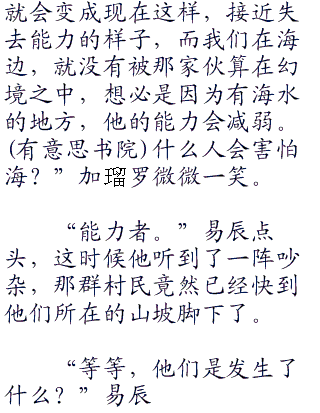 就会变成现在这样，接近失
去能力的样子，而我们在海
边，就没有被那家伙算在幻
境之中，想必是因为有海水
的地方，他的能力会减弱。
(有意思书院)什么人会害怕
海？”加瑠罗微微一笑。
“能力者。”易辰点
头，这时候他听到了一阵吵
杂，那群村民竟然已经快到
他们所在的山坡脚下了。
“等等，他们是发生了
什么？”易辰